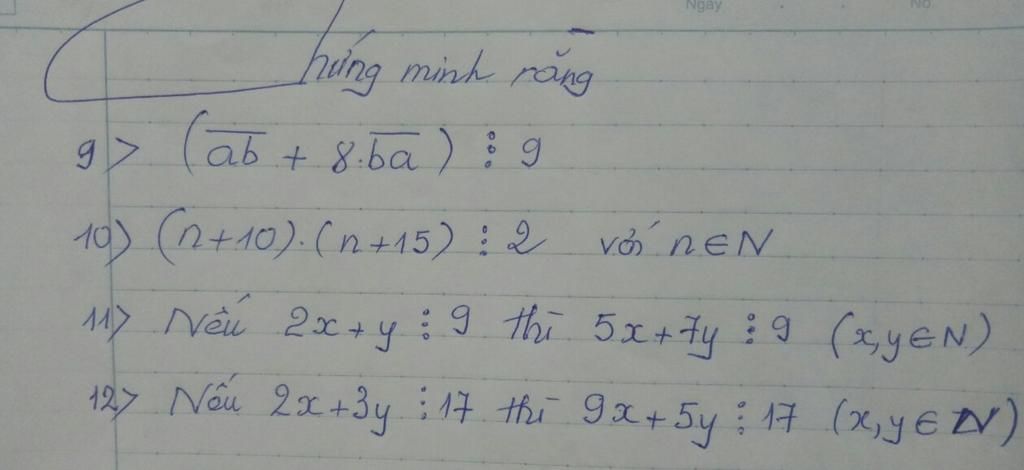 Ngày No.
Chứng minh rằng
9> (\overline{ab} + 8.\overline{ba}) ⋮ 9
10> (n+10).(n+15) ⋮ 2 với n∈N
11> Nếu 2x+y ⋮ 9 thì 5x+7y ⋮ 9 (x,y∈N)
12> Nếu 2x+3y ⋮ 17 thì 9x+5y ⋮ 17 (x,y∈N)